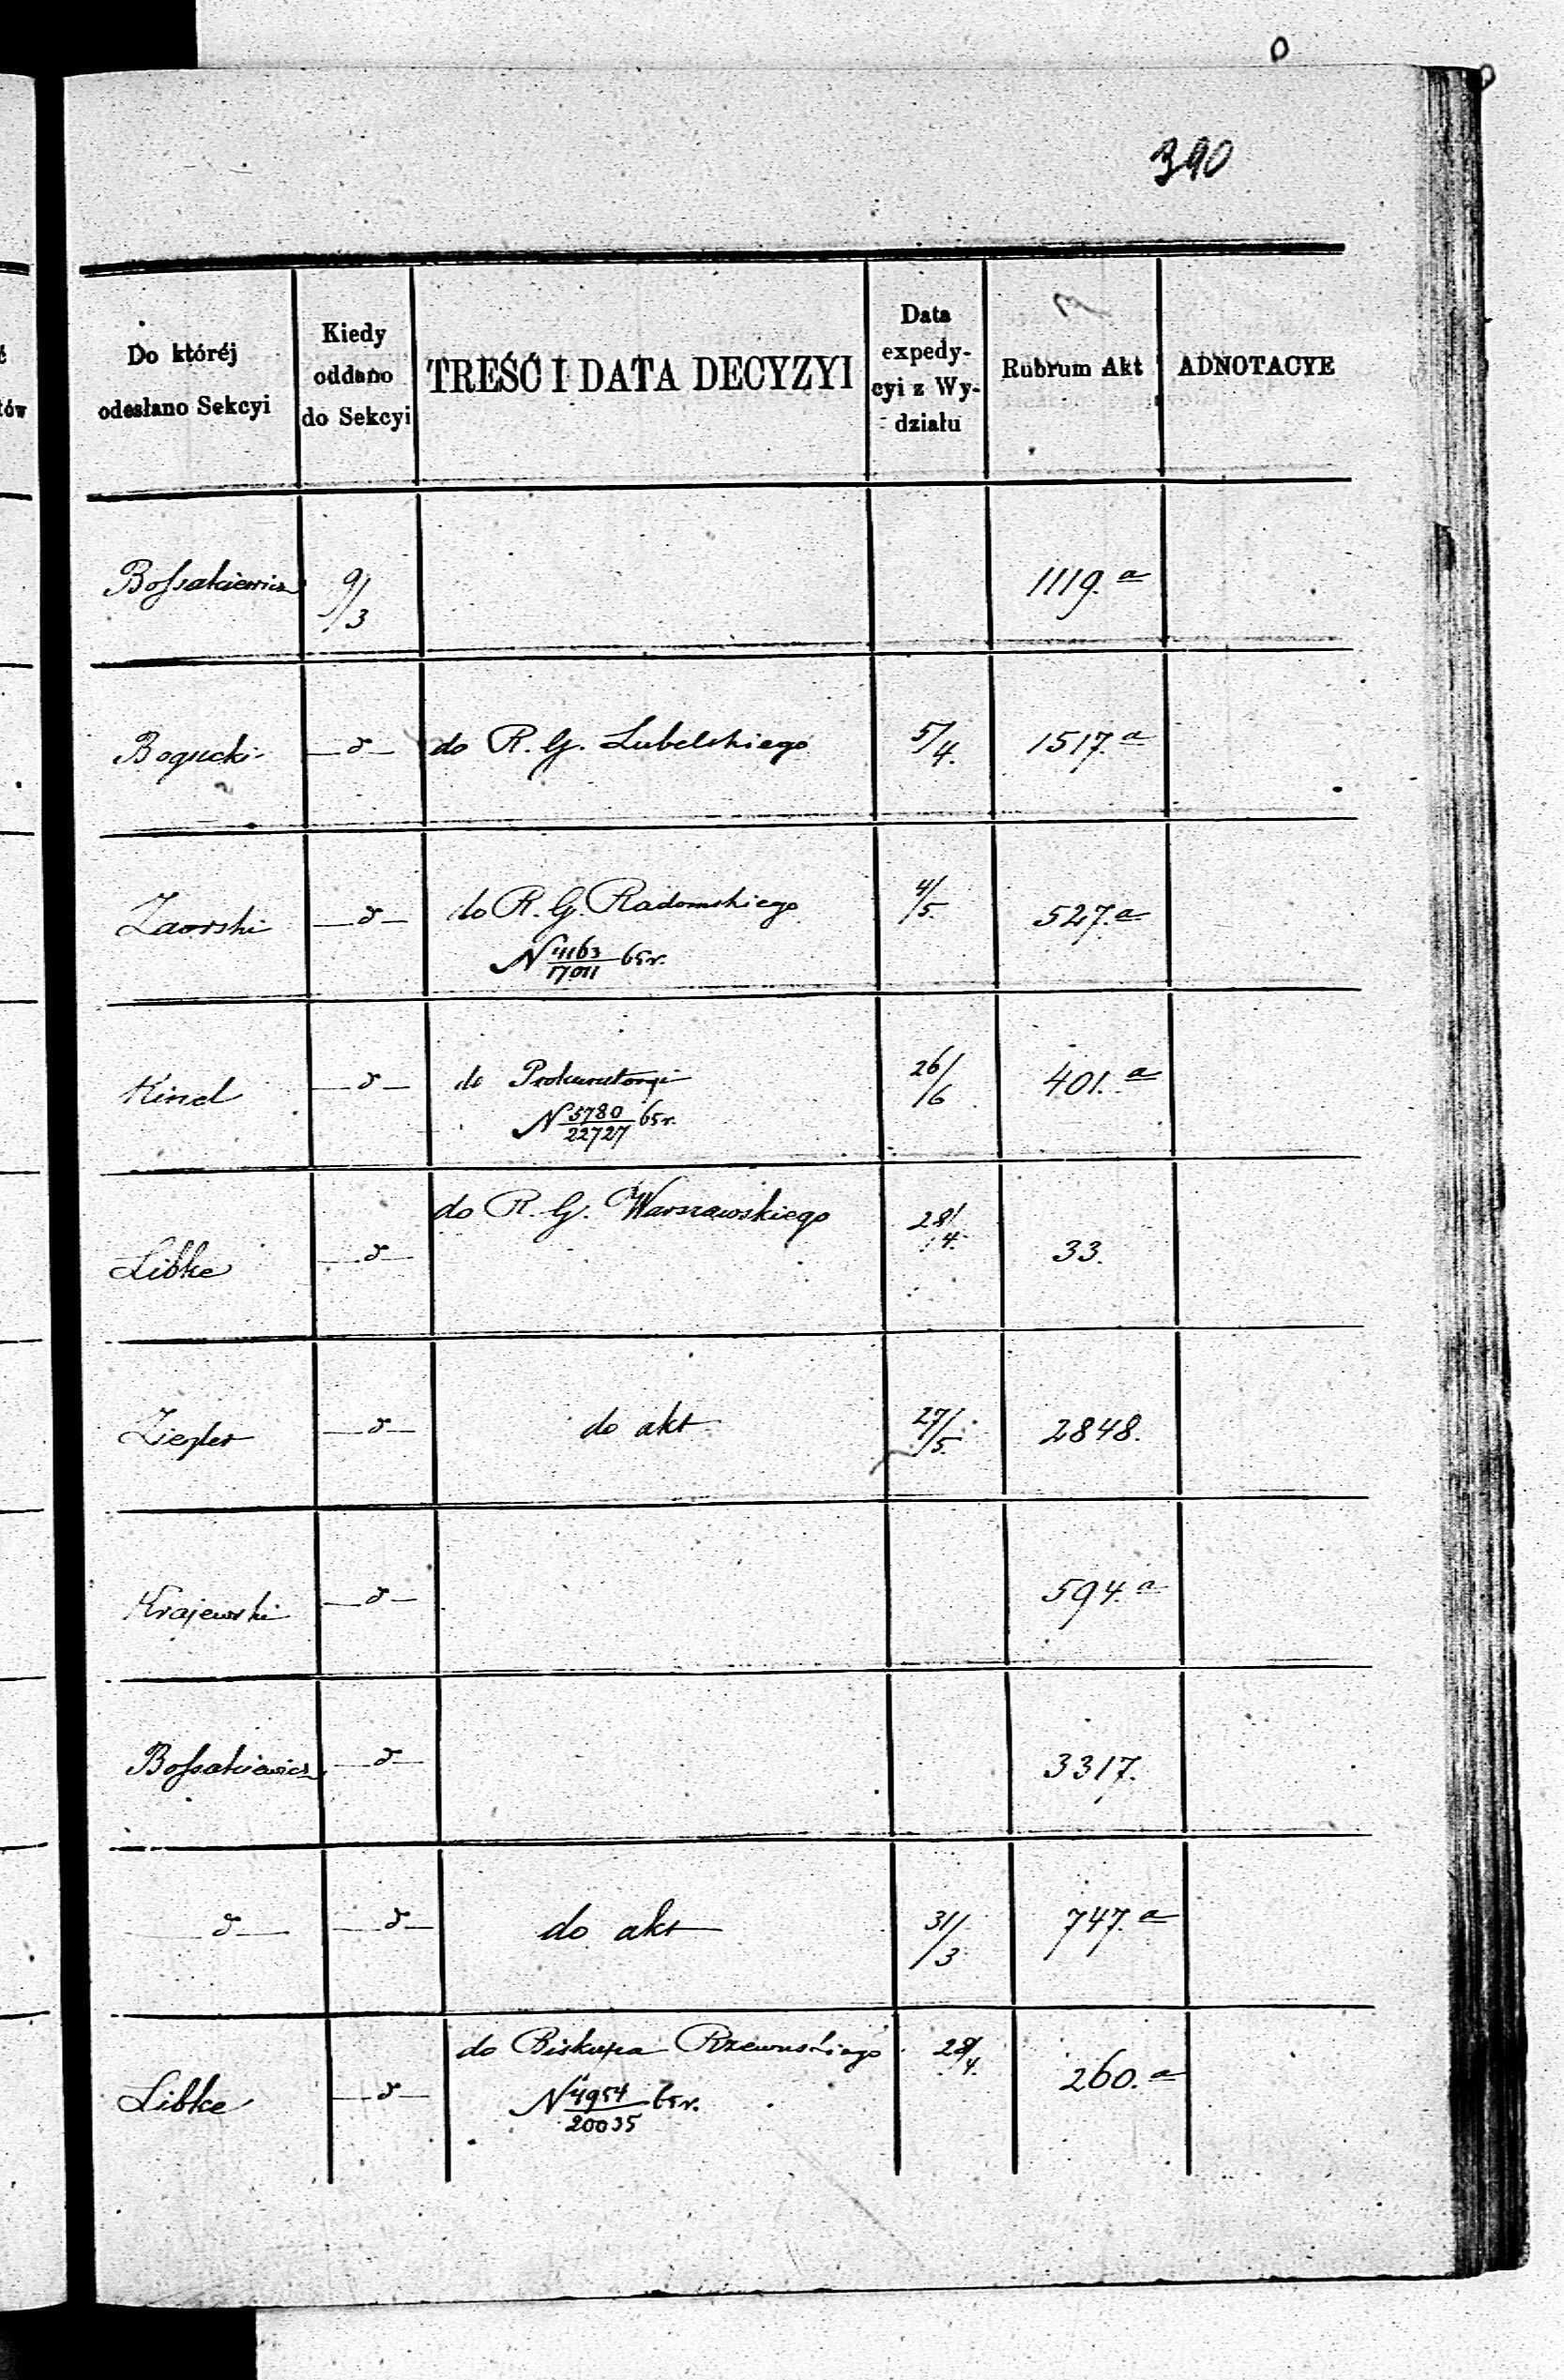 390
Do któréj odesłano Sekcyi | Kiedy oddano do Sekcyi | TREŚĆ I DATA DECYZYI | Data expedycyi z Wydziału | Rubrum Akt | ADNOTACYE
Bossakiewicz 9/3 1119.a
Bogucki d do R. G. Lubelskiego 5/4. 1517.a
Zaorski d do R. G. Radomskiego 4/5. 527.a
N 4163/17011 65r.
Kind d do Prokuratoryi 26/6 401.a
N 5780/22727 65r.
Libke d do R. G. Warszawskiego 28/4. 33.
Ziegler d do akt 27/5. 2848.
Krajewski d 594.a
Bossakiewicz d 3317.
d d do akt 31/3 747.a
Libke d do Biskupa Rzewuskiego 28/4. 260.a
N 4954/20035 65r.